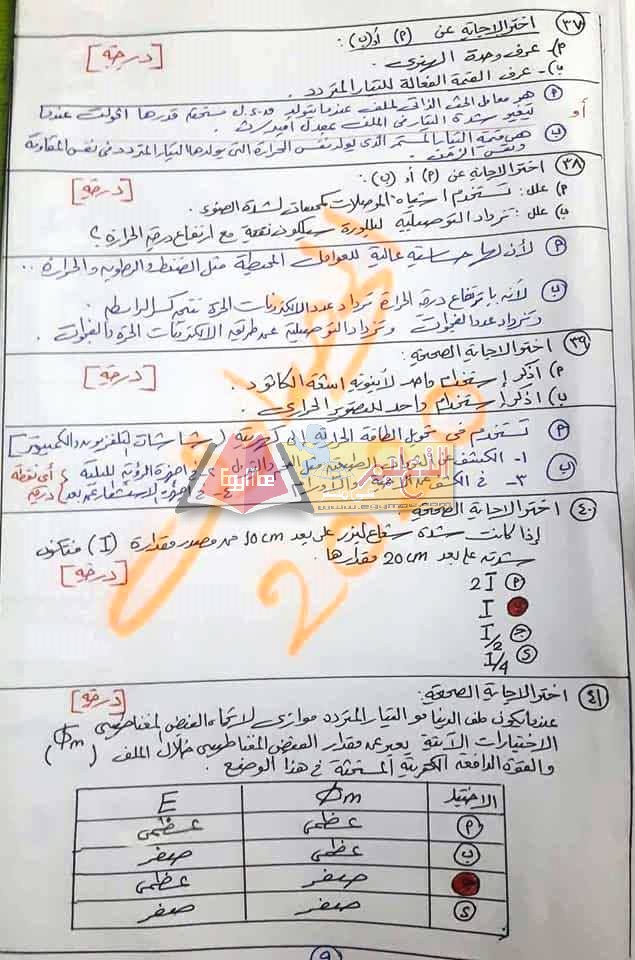 ٣٧ اختر الاجابة عن (٩) أو (ب):
٩) - عرف وحدة الهنرى.
ب) - عرف القيمة الفعالة للتيار المتردد.
[درجة]
٩ هو معامل الحث الذاتى لملف عندما يتولد فيه ق.د.ك مستحثة قدرها ١ فولت عندما
تتغير شدة التيار فى الملف بمعدل ١ أمبير/ث
أو
ب هى قيمة التيار المستمر الذى يولد نفس الحرارة التى يولدها التيار المتردد فى نفس المقاومة
ونفس الزمن.
٣٨ اختر الاجابة عن (٩) أو (ب):
٩) علل: تستخدم اشباه الموصلات كمجسات لشدة الضوء.
ب) علل: تزداد التوصيلية لبلورة سيلكون نقية مع ارتفاع درجة الحرارة؟
[درجة]
٩ لأن لها حساسية عالية للعوامل المحيطة مثل الضغط والرطوبة والحرارة ..
ب لأنه بارتفاع درجة الحرارة تزداد عدد الالكترونات الحرة نتيجة كسر الروابط
وتزداد عدد الفجوات وتزداد التوصيلية عن طريق الالكترونات الحرة والفجوات.
٣٩ اختر الاجابة الصحيحة:
٩) اذكر إستخدام واحد لأنبوبة اشعة الكاثود.
ب) اذكر إستخدام واحد للتصوير الحرارى.
[درجة]
٩ تستخدم فى تحول الطاقة الحرارية الى كهربية (شاشات التلفزيون والكمبيوتر]
ب ١- الكشف عن الثروات الطبيعية مثل
٢- فى اجهزة الرؤية الليلية
٣- فى الكشف عن الأجنة والأورام
٤- فى اجهزة الاستشعار عن بعد
أى نقطة درجة
٤٠ اختر الاجابة الصحيحة
إذا كانت شدة شعاع ليزر على بعد 10 cm من مصدر مقدارة (I) فتكون
شدته على بعد 20 cm مقدارها.
[درجة]
٩ 2I
I
ج I/2
د I/4
٤١ اختر الاجابة الصحيحة:
[درجة]
عندما يكون ملف الدينامو التيار المتردد موازى لاتجاه الفيض المغناطيسى
الاختيارات الآتية يعبر عن مقدار الفيض المغناطيسى خلال الملف (Φm)
والقوة الدافعة الكهربية المستحثة فى هذا الوضع.
الاختيار Φm E
٩ عظمى عظمى
ب عظمى صفر
صفر عظمى
د صفر صفر
٩